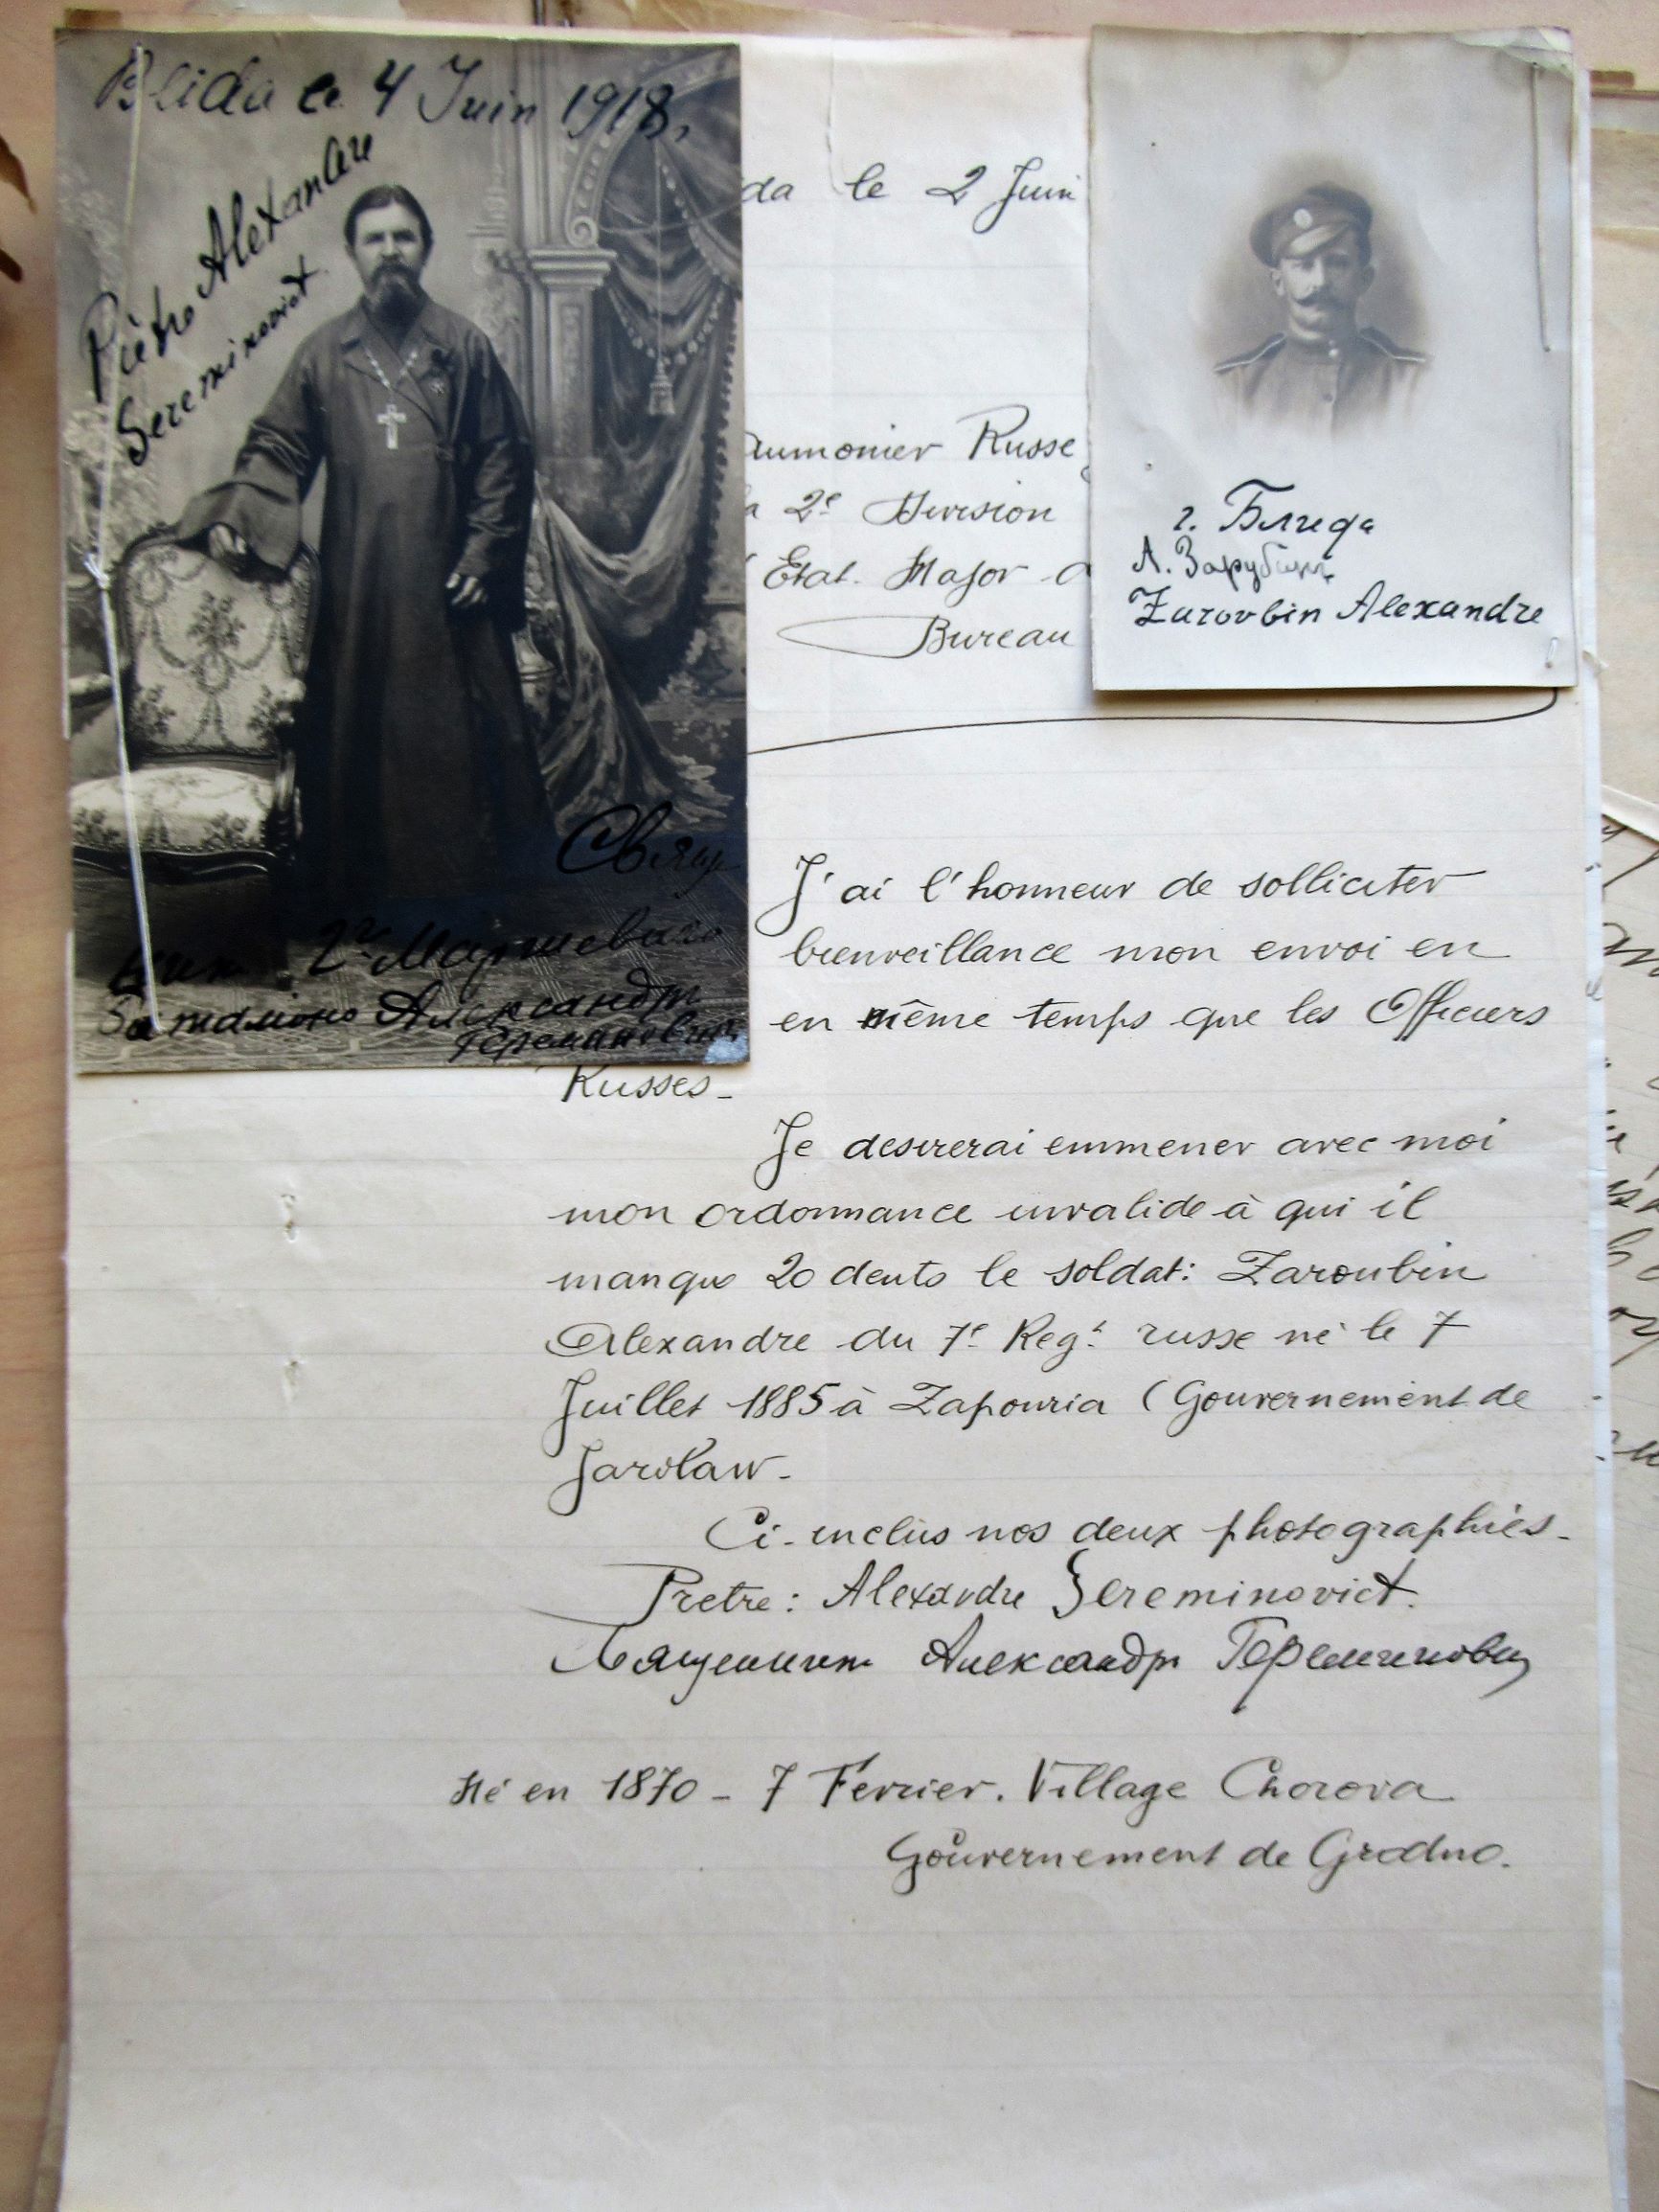 Blida le 4 Juin 1918,
Piètre Alexandre
Sereminovict
Свящ
2го Маршевого
Баталиона Александр
Гереминович
da le 2 Juin
aumonier Russe
2e Division
Etat. Major
Bureau
г. Блида
А. Зарубинъ
Zaroubin Alexandre
J'ai l'honneur de solliciter
bienveillance mon envoi en
en même temps que les Officiers
Russes_
Je desirerai emmener avec moi
mon ordonnance invalide à qui il
manque 20 dents le soldat: Zaroubin
Alexandre du 7e Regt russe né le 7
Juillet 1885 à Zapouria (Gouvernement de
Jarolaw_
Ci-inclus nos deux photographies_
Pretre: Alexandre Sereminovict.
Священник Александр Гереминович
Né en 1870 - 7 Fevrier. Village Chorova
Gouvernement de Grodno.